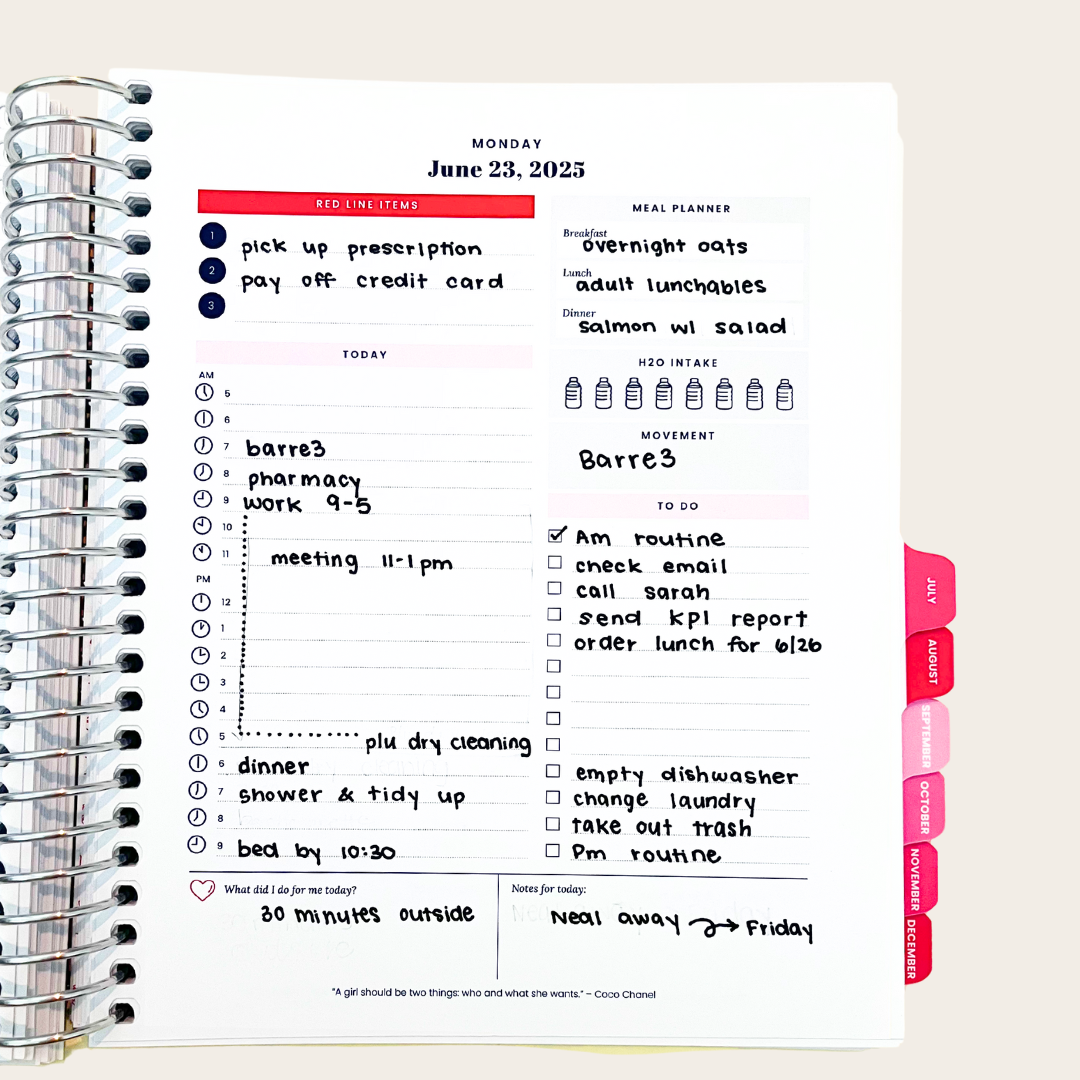 MONDAY
June 23, 2025
RED LINE ITEMS
1 pick up prescription
2 pay off credit card
3
TODAY
AM
5
6
7 barre3
8 pharmacy
9 work 9-5
10
11 meeting 11-1pm
PM
12
1
2
3
4
5 plu dry cleaning
6 dinner
7 shower & tidy up
8
9 bed by 10:30
MEAL PLANNER
Breakfast
overnight oats
Lunch
adult lunchables
Dinner
salmon w/ salad
H2O INTAKE
MOVEMENT
Barre3
TO DO
Am routine
check email
call sarah
send KPI report
order lunch for 6/26
empty dishwasher
change laundry
take out trash
Pm routine
What did I do for me today?
30 minutes outside
Notes for today:
Neal away → Friday
"A girl should be two things: who and what she wants." – Coco Chanel
JULY
AUGUST
SEPTEMBER
OCTOBER
NOVEMBER
DECEMBER